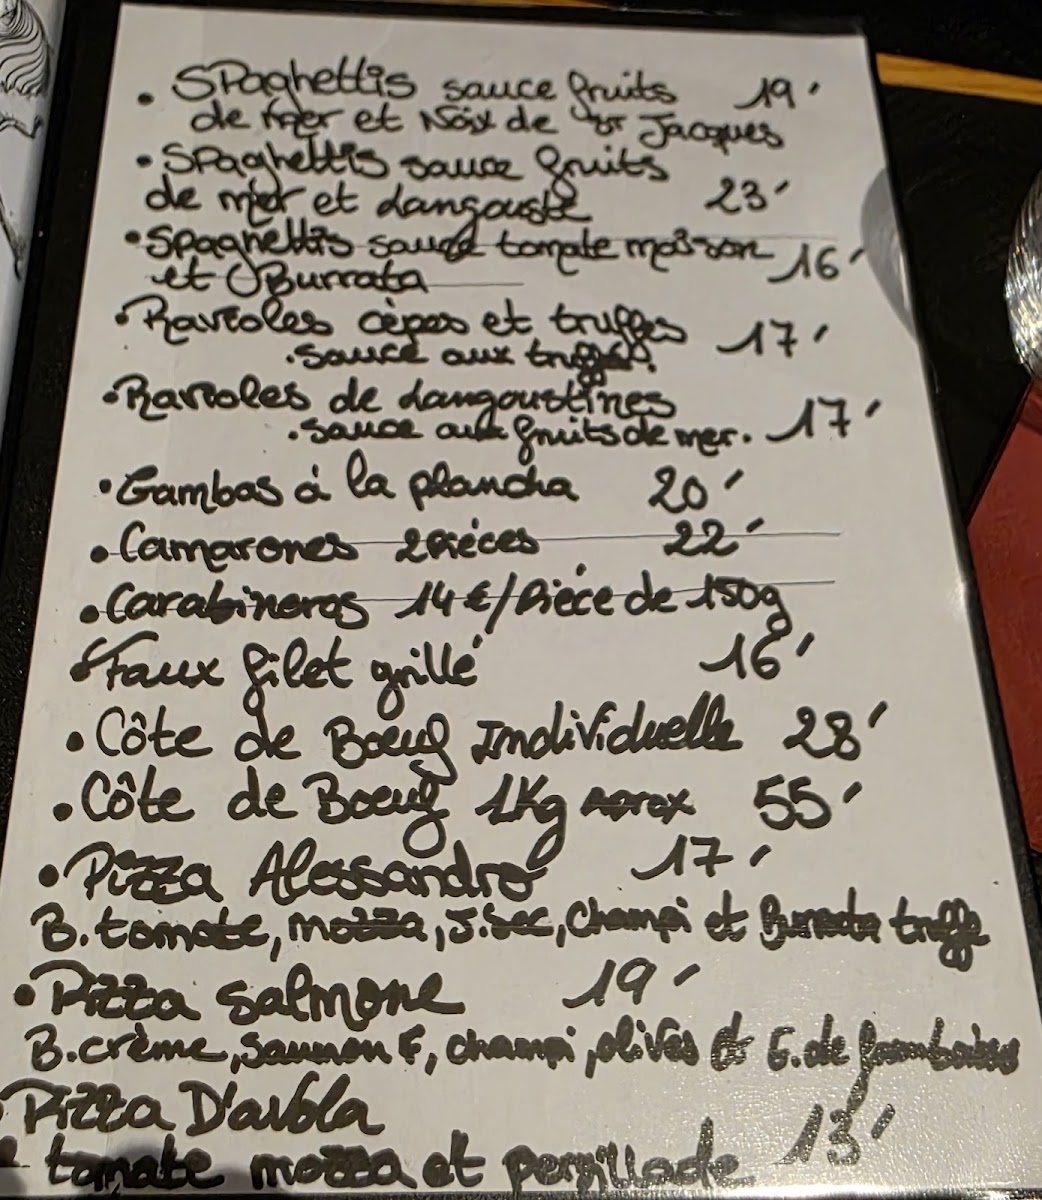 • Spaghettis sauce fruits 19'
de mer et Noix de St Jacques
• Spaghettis sauce fruits
de mer et Langouste 23'
• Spaghettis sauce tomate maison 16'
et Burrata
• Ravioles cèpes et truffes 17'
. sauce aux truffes.
• Ravioles de Langoustines
. sauce aux fruits de mer. 17'
• Gambas à la plancha 20'
• Camarones 2 Pièces 22'
• Carabineros 14€/Pièce de 150g
• Faux filet grillé 16'
• Côte de Boeuf Individuelle 28'
• Côte de Boeuf 1Kg Aprox 55'
• Pizza Alessandro 17'
B. tomate, mozza, J. Sec, Champi et Burrata truffe
• Pizza Salmone 19'
B. crème, Saumon F, champi, olives et G. de framboises
Pizza D'avola
tomate mozza et persillade 13'